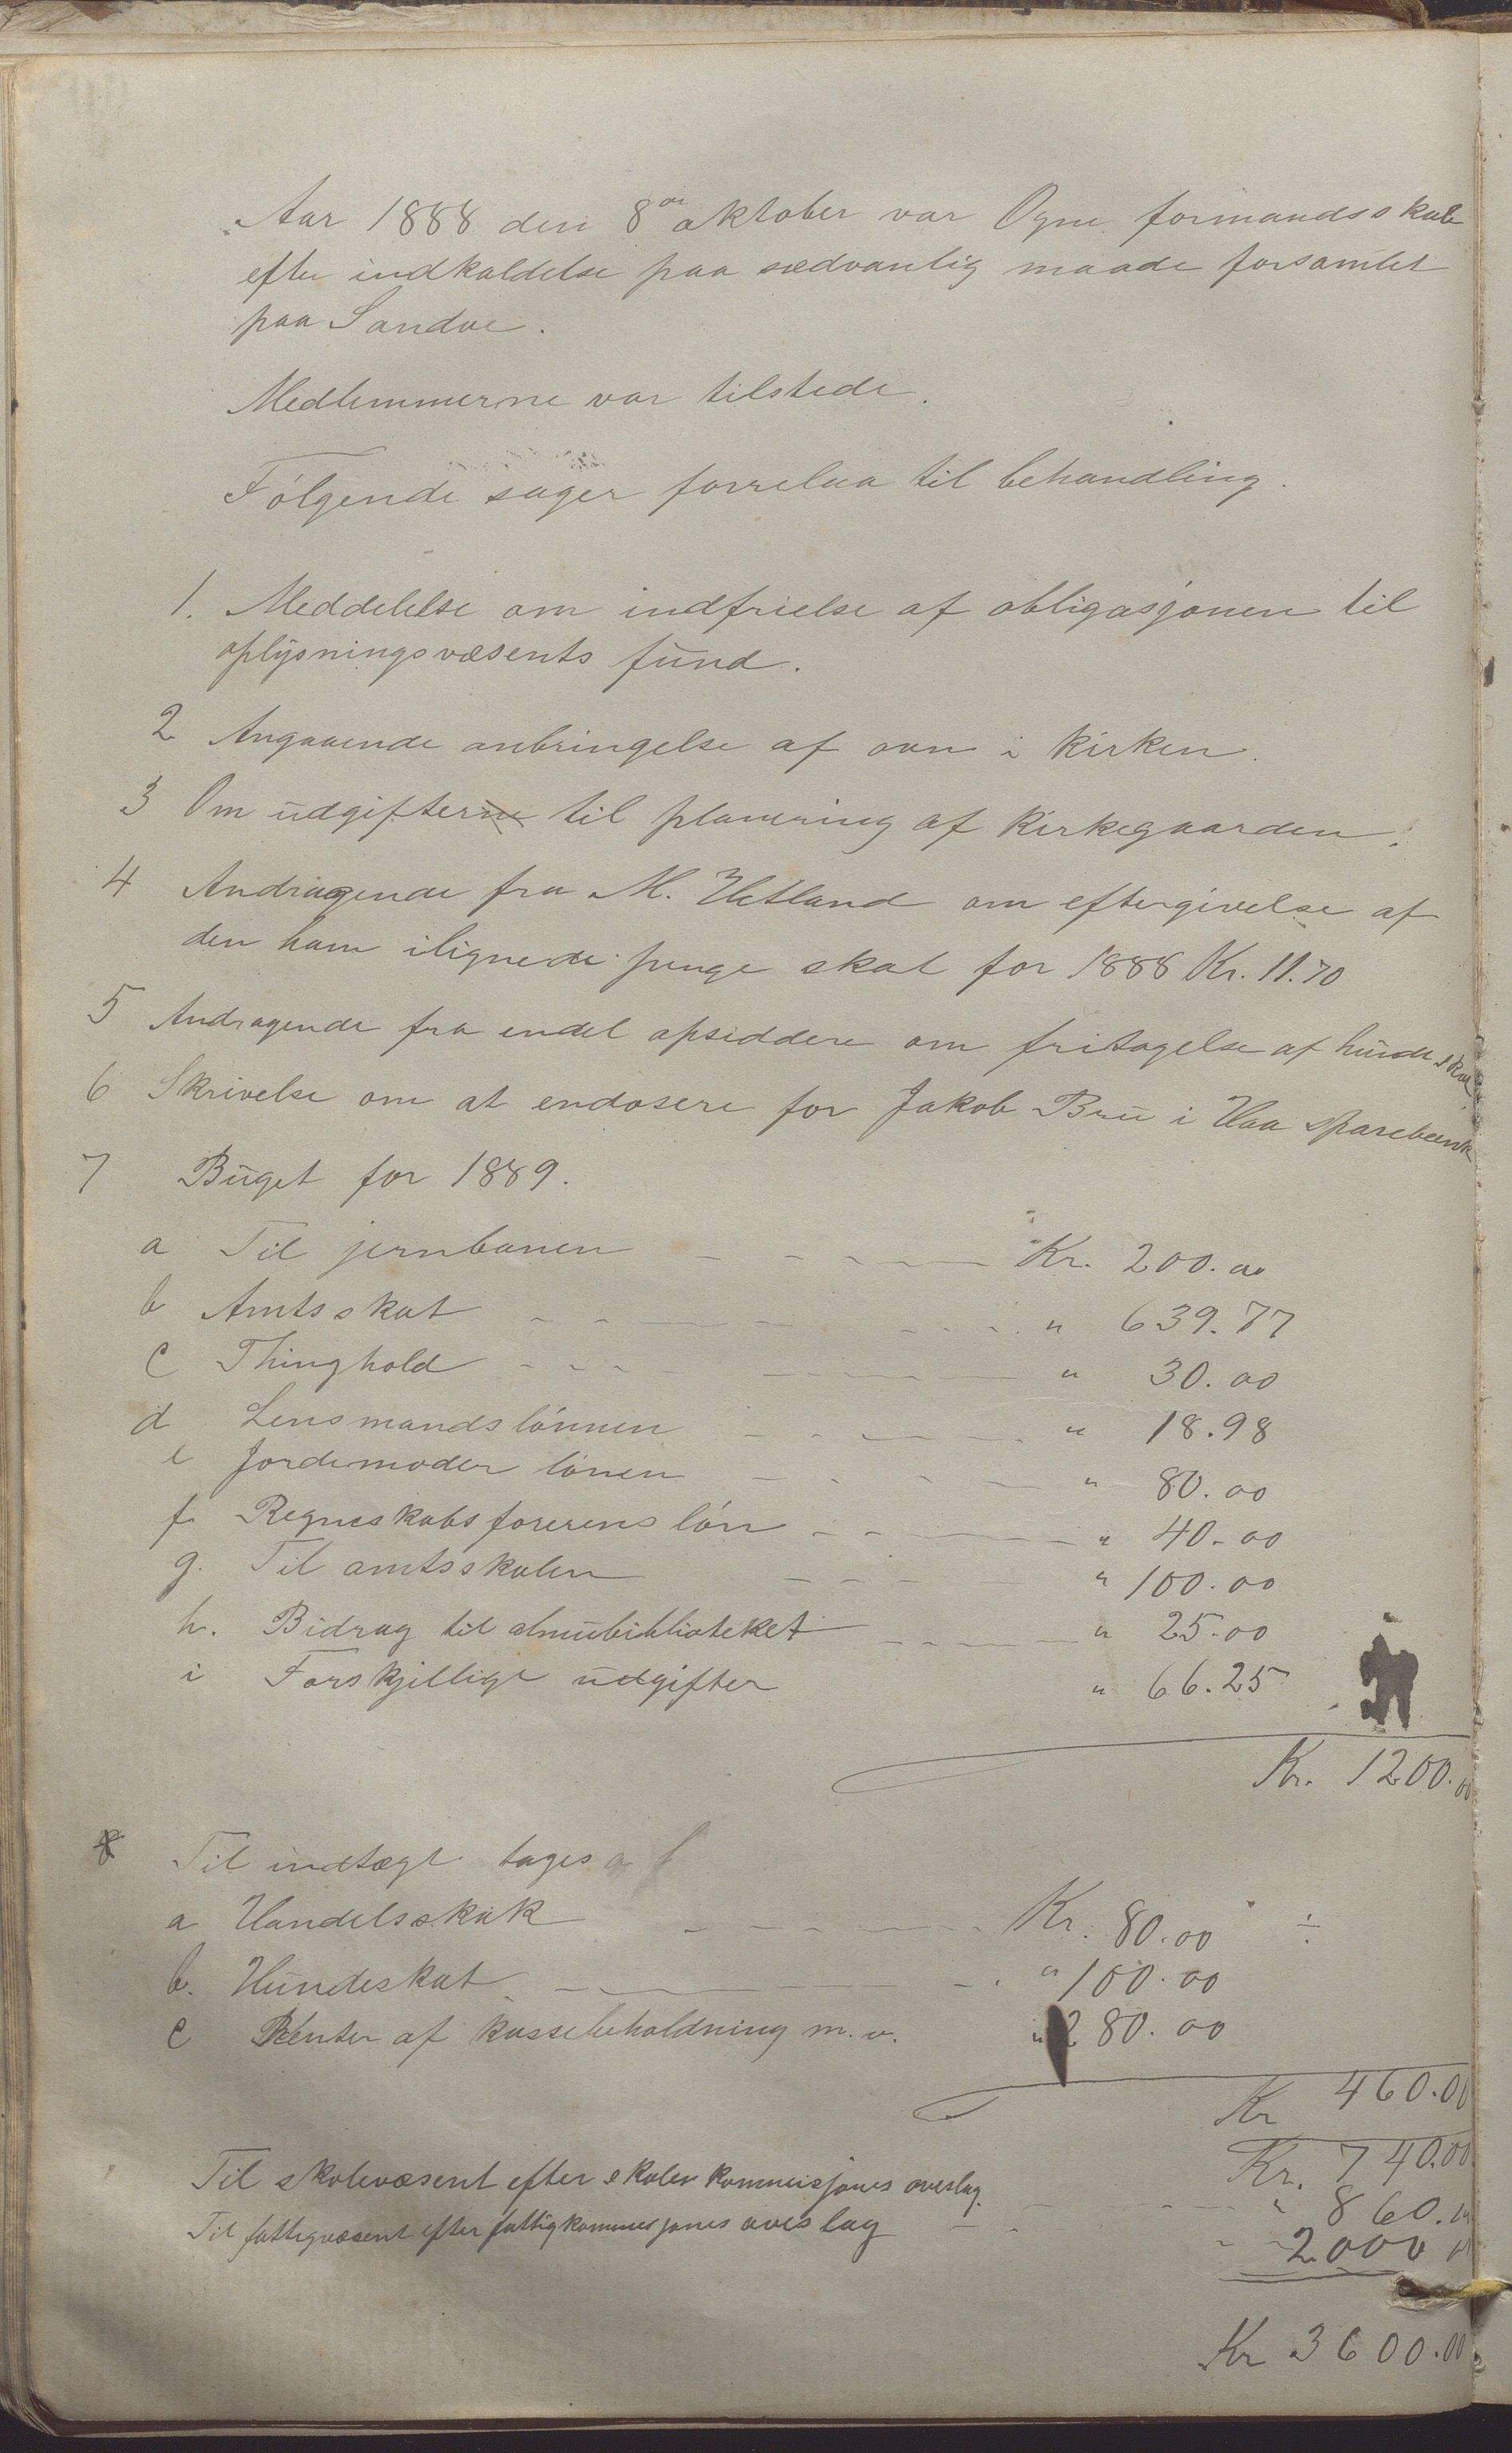 Aar 1888 den 8de oktober var Ogne formandsskab
efter indkaldelse paa sædvanlig maade forsamlet
paa Sandve.
Medlemmerne var tilstede.
Følgende sager forrelaa til behandling.
1. Meddelelse om indfrielse af obligasjonen til
oplysningsvæsents fund.
2 Angaaende anbringelse af ovn i kirken.
3 Om udgifterne til planering af kirkegaarden.
4 Andragende fra M. Hetland om eftergivelse af
den ham ilignede penge skat for 1888 Kr. 11.70
5 Andragende fra endel opsiddere om fritagelse af hundeskat
6 Skrivelse om at endosere for Jakob Bru i Haa sparebank
7 Buget for 1889.
a Til jernbanen Kr. 200.00
b Amtsskat " 639.77
c Thinghold " 30.00
d Lensmandslønnen " 18.98
e Jordemoder lønen " 80.00
f. Regneskabsførerens løn " 40.00
g. Til amtsskolen " 100.00
h. Bidrag til almubiblioteket " 25.00
i Forskjellige udgifter " 66.25
Kr. 1200.00
Til indtægt tages
a Handelsskat Kr. 80.00 ÷
b. Hundeskat " 100.00
c Renter af kassebeholdning m.v. " 280.00
Kr 460.00
Kr. 740.00
Til skolevæsent efter skolekommisjones overslag. " 860.00
Til fattigvæsent efter fattigkommisjones overslag " 2000 00
Kr 3600.00